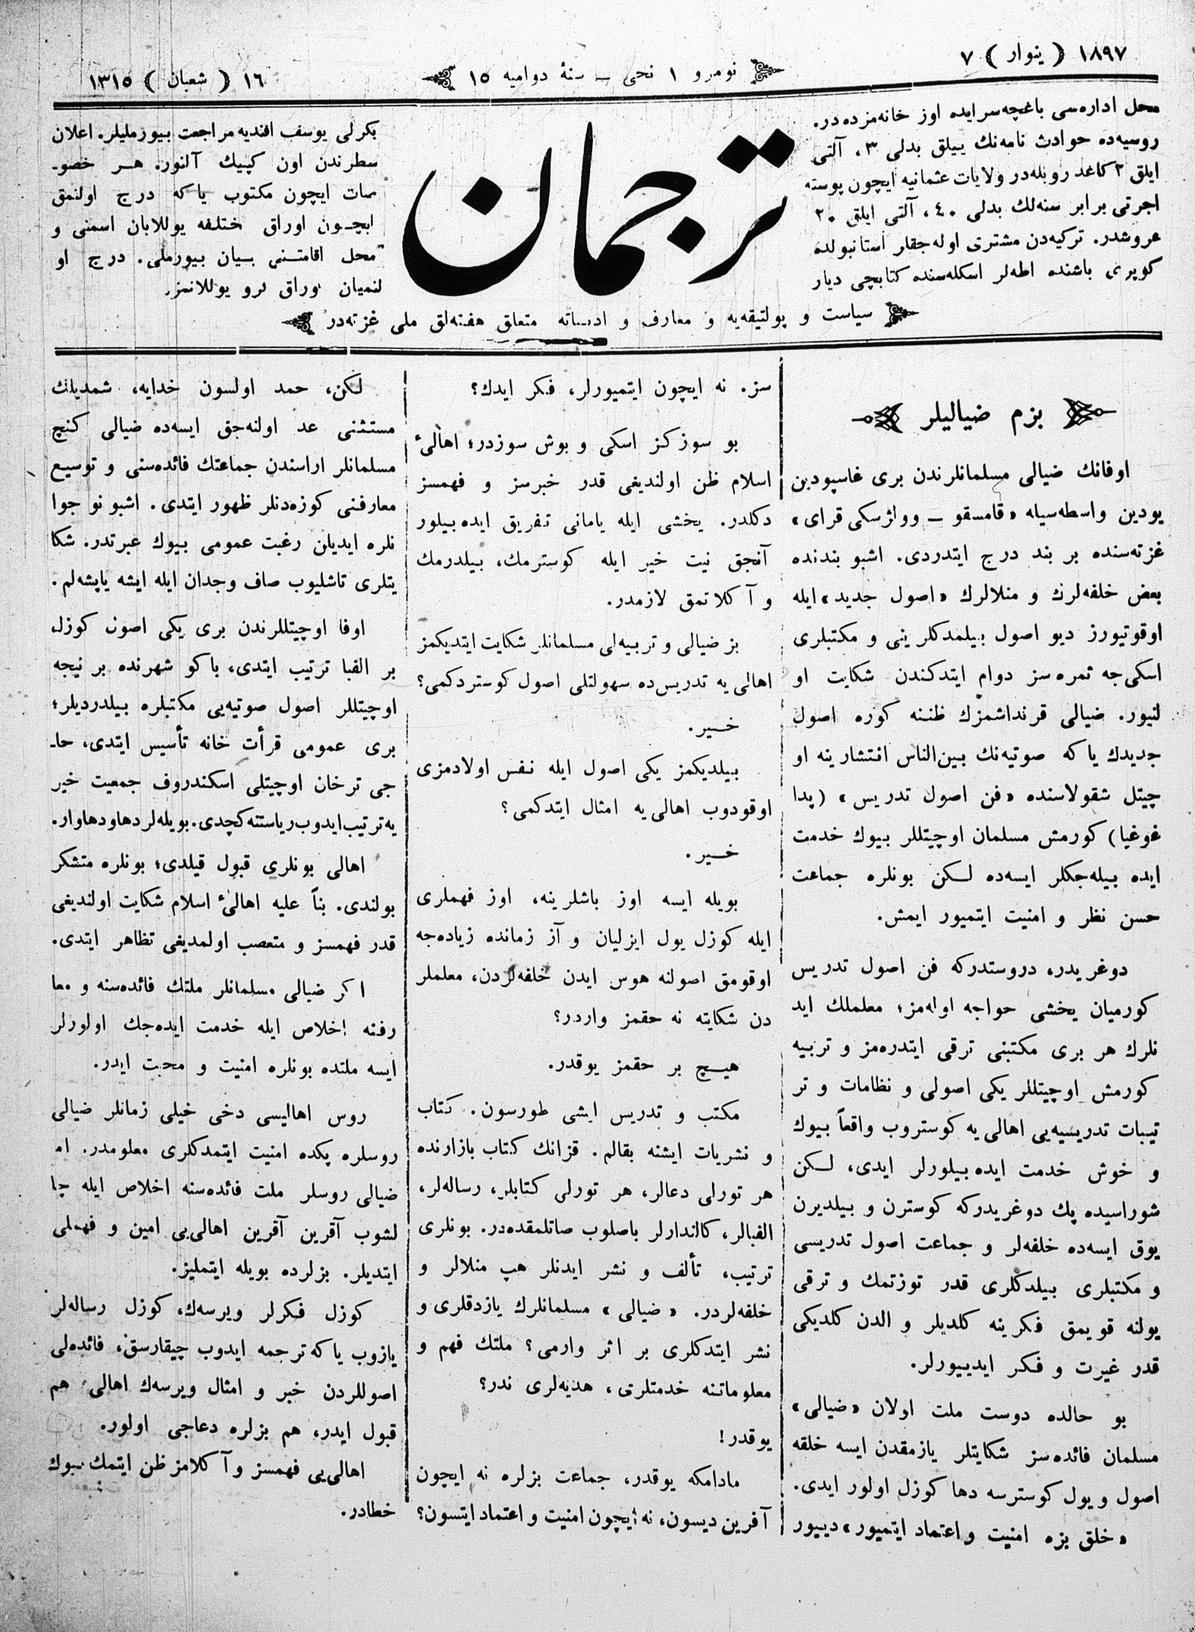 ١٨٩٧ ( ينوار ) ٧
نومرو ١ نجى ــ سنهٔ دواميه ١٥
١٦ ( شعبان ) ١٣١٥
محل اداره‌سى باغچه‌سرايده اوز خانه‌مزده‌در.
روسيه‌ده حوادث نامه‌نك ييللق بدلى ٣، آلتى
ايلق ٢ كاغد روبله‌در ولايات عثمانيه ايچون پوسته
اجرتى برابر سنه‌لك بدلى ٤٠، آلتى ايلق ٢٠
غروشدر. تركيه‌دن مشترى اوله‌جقلر استانبولده
كوپرى باشنده اطه‌لر اسكله‌سنده كتابچى ديار
بكرلى يوسف افنديه مراجعت بيورمليلر. اعلان
سطرندن اون كپيك آلنور. هــر خصو-
صات ايچون مكتوب ياكه درج اولنمق
ايچــون اوراق مختلفه يوللايان اسمنى و
محل اقامتــنى بيــان بيورملى. درج او
لنميان اوراق كرو يوللانمز.
ترجمان
سياست و پولتيقه‌يه و معارف و ادبياته متعلق هفته‌لق ملى غزته‌در
بزم ضياليلر
اوفانك ضيالى مسلمانلرندن برى غاسپودين
يودين واسطه‌سيله «قامسقو ــ وولژسكى قراى»
غزته‌سنده بر بند درج ايتدردى. اشبو بندنده
بعض خلفه‌لرك و منلالرك «اصول جديد» ايله
اوقوتيورز ديو اصول بيلمدكلرينى و مكتبلرى
اسكى‌جه ثمره سز دوام ايتدكندن شكايت او
لنيور. ضيالى قرنداشمزك ظننه كوره اصول
جديدك ياكه صوتيه‌نك بين‌الناس انتشارينه او
چيتل شقولاسنده «فن اصول تدريس» (پدا
غوغيا) كورمش مسلمان اوچيتللر بيوك خدمت
ايده بيله‌جكلر ايسه‌ده لــكن بونلره جماعت
حسن نظر و امنيت ايتميور ايمش.
دوغريدر، دروستدركه فن اصول تدريس
كورميان يخشى خواجه اوله‌مز؛ معلملك ايد
نلرك هر برى مكتبنى ترقى ايتدره‌مز و تربيه
كورمش اوچيتللر يكى اصولى و نظامات و تر
تيبات تدريسيه‌يى اهالى يه كوستروب واقعاً بيوك
و خوش خدمت ايده بيلورلر ايدى، لــكن
شوراسيده پك دوغريدركه كوسترن و بيلديرن
يوق ايسه‌ده خلفه‌لر و جماعت اصول تدريسى
و مكتبلرى بيلدكلرى قدر توزتمك و ترقى
يولنه قويمق فكرينه كلديلر و الدن كلديكى
قدر غيرت و فكر ايدييورلر.
بو حالده دوست ملت اولان «ضيالى»
مسلمان فائده‌سز شكايتلر يازمقدن ايسه خلقه
اصول و يول كوسترسه دها كوزل اولور ايدى.
«خلق بزه امنيت و اعتماد ايتميور» دييور
سز. نه ايچون ايتميورلر، فكر ايدك؟
بو سوزكز اسكى و بوش سوزدر؛ اهالىٔ
اسلام ظن اولنديغى قدر خبرسز و فهمسز
دكلدر. يخشى ايله يامانى تفريق ايده‌بيلور
آنجق نيت خير ايله كوسترمك، بيلدرمك
و آكلاتمق لازمدر.
بز ضيالى و تربيه‌لى مسلمانلر شكايت ايتديكمز
اهالى يه تدريس‌ده سهولتلى اصول كوستردكمى؟
خــير.
بيلديكمز يكى اصول ايله نفس اولادمزى
اوقودوب اهالى يه امثال ايتدكمى؟
خــير.
بويله ايسه اوز باشلرينه، اوز فهملرى
ايله كوزل يول ايزليان و آز زمانده زياده‌جه
اوقومق اصولنه هوس ايدن خلفه‌لردن، معلملر
دن شكايته نه حقمز واردر؟
هيــچ بر حقمز يوقدر.
مكتب و تدريس ايشى طورسون. كتاب
و نشريات ايشنه بقالم. قزانك كتاب بازارنده
هر تورلى دعالر، هر تورلى كتابلر، رساله‌لر،
الفبالر، كالندارلر باصلوب صاتلمقده‌در. بونلرى
ترتيب، تألف و نشر ايدنلر هپ منلالر و
خلفه‌لردر. «ضيالى» مسلمانلرك يازدقلرى و
نشر ايتدكلرى بر اثر وارمى؟ ملتك فهم و
معلوماتنه خدمتلرى، هديه‌لرى ندر؟
يوقدر!
مادامكه يوقدر، جماعت بزلره نه ايچون
آفرين ديسون، نه ايچون امنيت و اعتماد ايتسون؟
لكن، حمد اولسون خدايه، شمديلك
مستثنى عد اولنه‌جق ايسه‌ده ضيالى كنچ
مسلمانلر اراسندن جماعتك فائده‌سنى و توسيع
معارفنى كوزه‌دنلر ظهور ايتدى. اشبو نو جوا
نلره ايديلن رغبت عمومى بيوك عبرتدر. شكا
يتلرى تاشليوب صاف وجدان ايله ايشه ياپشه‌لم.
اوفا اوچيتللرندن برى يكى اصون كوزل
بر الفبا ترتيب ايتدى، باكو شهرنده بر نيجه
اوچيتللر اصول صوتيه‌يى مكتبلره بيلدرديلر؛
برى عمومى قرأت خانه تأسيس ايتدى، حا-
جى ترخان اوچيتلى اسكندروف جمعيت خير
يه ترتيب ايدوب رياستنه كچدى. بويله‌لر دها و دها وار.
اهالى بونلرى قبول قيلدى؛ بونلره متشكر
بولندى. بناً عليه اهالىٔ اسلام شكايت اولنديغى
قدر فهمسز و متعصب اولمديغى تظاهر ايتدى.
اكر ضيالى مسلمانلر ملتك فائده‌سنه و معا
رفنه اخلاص ايله خدمت ايده‌جك اولورلر
ايسه ملتده بونلره امنيت و محبت ايدر.
روس اهاليسى دخى خيلى زمانلر ضيالى
روسلره پكده امنيت ايتمدكلرى معلومدر. اما
ضيالى روسلر ملت فائده‌سنه اخلاص ايله چا
لشوب آقرين آقرين اهالى‌يى امين و فهملى
ايتديلر. بزلرده بويله ايتمليز.
كوزل فكرلر ويرسه‌ك، كوزل رساله‌لر
يازوب ياكه ترجمه ايدوب چيقارسق، فائده‌لى
اصوللردن خبر و امثال ويرسه‌ك اهالى هم
قبول ايدر، هم بزلره دعاجى اولور.
اهالى‌يى فهمسز و آكلامز ظن ايتمك بيوك
خطادر.